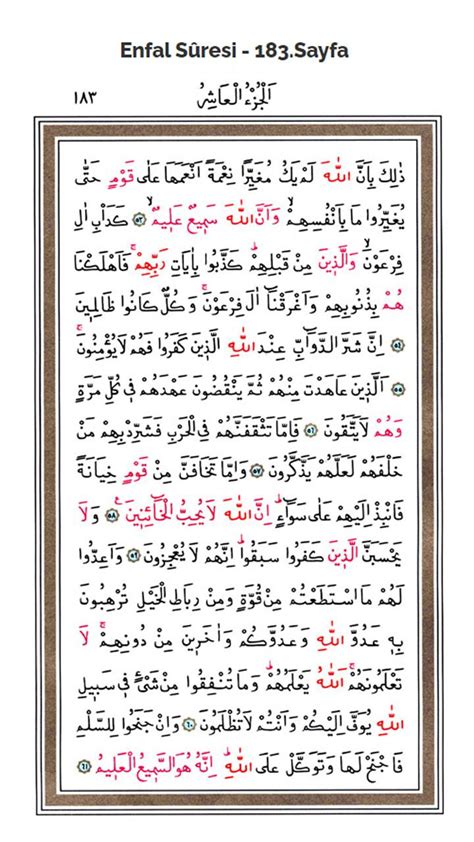 Enfal Sûresi - 183.Sayfa
اَلْجُزْءُ الْعَاشِرُ ١٨٣
ذٰلِكَ بِاَنَّ اللّٰهَ لَمْ يَكُ مُغَيِّرًا نِعْمَةً اَنْعَمَهَا عَلٰى قَوْمٍ حَتّٰى
يُغَيِّرُوا مَا بِاَنْفُسِهِمْۙ وَاَنَّ اللّٰهَ سَمٖيعٌ عَلٖيمٌۙ ﴿٥٣﴾ كَدَاْبِ اٰلِ
فِرْعَوْنَۙ وَالَّذٖينَ مِنْ قَبْلِهِمْؕ كَذَّبُوا بِاٰيَاتِ رَبِّهِمْۚ فَاَهْلَكْنَا
هُمْ بِذُنُوبِهِمْ وَاَغْرَقْنَٓا اٰلَ فِرْعَوْنَۚ وَكُلٌّ كَانُوا ظَالِمٖينَ
﴿٥٤﴾ اِنَّ شَرَّ الدَّوَٓابِّ عِنْدَ اللّٰهِ الَّذٖينَ كَفَرُوا فَهُمْ لَا يُؤْمِنُونَۚ
﴿٥٥﴾ اَلَّذٖينَ عَاهَدْتَ مِنْهُمْ ثُمَّ يَنْقُضُونَ عَهْدَهُمْ فٖى كُلِّ مَرَّةٍ
وَهُمْ لَا يَتَّقُونَ ﴿٥٦﴾ فَاِمَّا تَثْقَفَنَّهُمْ فِى الْحَرْبِ فَشَرِّدْ بِهِمْ مَنْ
خَلْفَهُمْ لَعَلَّهُمْ يَذَّكَّرُونَ ﴿٥٧﴾ وَاِمَّا تَخَافَنَّ مِنْ قَوْمٍ خِيَانَةً
فَانْبِذْ اِلَيْهِمْ عَلٰى سَوَٓاءٍؕ اِنَّ اللّٰهَ لَا يُحِبُّ الْخَٓائِنٖينَۚ ﴿٥٨﴾ وَلَا
يَحْسَبَنَّ الَّذٖينَ كَفَرُوا سَبَقُواؕ اِنَّهُمْ لَا يُعْجِزُونَ ﴿٥٩﴾ وَاَعِدُّوا
لَهُمْ مَا اسْتَطَعْتُمْ مِنْ قُوَّةٍ وَمِنْ رِبَاطِ الْخَيْلِ تُرْهِبُونَ
بِهٖ عَدُوَّ اللّٰهِ وَعَدُوَّكُمْ وَاٰخَرٖينَ مِنْ دُونِهِمْۚ لَا
تَعْلَمُونَهُمْۚ اَللّٰهُ يَعْلَمُهُمْؕ وَمَا تُنْفِقُوا مِنْ شَىْءٍ فٖى سَبٖيلِ
اللّٰهِ يُوَفَّ اِلَيْكُمْ وَاَنْتُمْ لَا تُظْلَمُونَ ﴿٦٠﴾ وَاِنْ جَنَحُوا لِلسَّلْمِ
فَاجْنَحْ لَهَا وَتَوَكَّلْ عَلَى اللّٰهِؕ اِنَّهُ هُوَ السَّمٖيعُ الْعَلٖيمُ ﴿٦١﴾